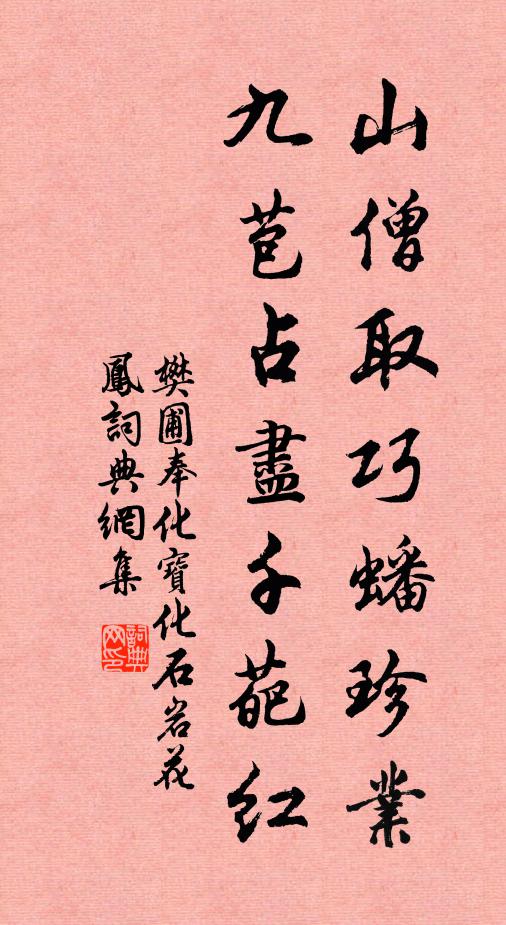 山僧取巧蟠珍業
九苞占盡千葩紅
樊圃奉化寶化石岩花
鳳詞典網集
詞典网印